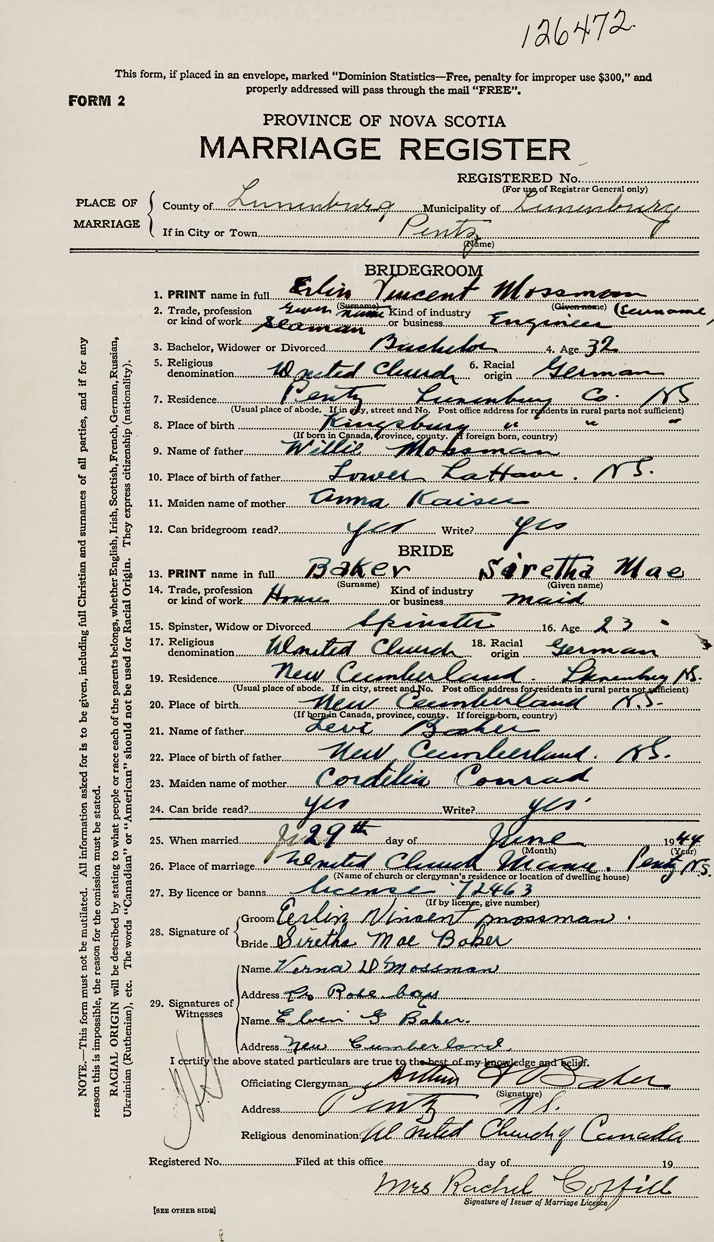 126472.
This form, if placed in an envelope, marked "Dominion Statistics—Free, penalty for improper use $300," and
properly addressed will pass through the mail "FREE".
FORM 2
PROVINCE OF NOVA SCOTIA
MARRIAGE REGISTER
REGISTERED No.
(For use of Registrar General only)
PLACE OF MARRIAGE
County of Lunenburg Municipality of Lunenburg
If in City or Town Pentz
(Name)
BRIDEGROOM
1. PRINT name in full Erlin Vincent Mossman
(Surname) (Given name) (Surname)
Given name
2. Trade, profession or kind of work Seaman Kind of industry or business Engineer
3. Bachelor, Widower or Divorced Bachelor 4. Age 32
5. Religious denomination United Church 6. Racial origin German
7. Residence Pentz Lunenburg Co. NS
(Usual place of abode. If in city, street and No. Post office address for residents in rural parts not sufficient)
8. Place of birth Kingsbury " " "
(If born in Canada, province, county. If foreign born, country)
9. Name of father Willis Mossman
10. Place of birth of father Lower LaHave. NS.
11. Maiden name of mother Anna Kaiser
12. Can bridegroom read? yes Write? yes
BRIDE
13. PRINT name in full Baker Siretha Mae
(Surname) (Given name)
14. Trade, profession or kind of work House Kind of industry or business maid
15. Spinster, Widow or Divorced Spinster 16. Age 23
17. Religious denomination United Church 18. Racial origin German
19. Residence New Cumberland. Lunenburg NS.
(Usual place of abode. If in city, street and No. Post office address for residents in rural parts not sufficient)
20. Place of birth New Cumberland N.S.
(If born in Canada, province, county. If foreign born, country)
21. Name of father Levi Baker
22. Place of birth of father New Cumberland. NS.
23. Maiden name of mother Cordelia Conrad
24. Can bride read? yes Write? yes
25. When married 29th day of June 1944
(Month) (Year)
26. Place of marriage United Church Manse. Pentz N.S.
(Name of church or clergyman's residence or location of dwelling house)
27. By licence or banns license 72463
(If by licence, give number)
28. Signature of
Groom Erlin Vincent mossman.
Bride Siretha Mae Baker
29. Signatures of Witnesses
Name Verna D Mossman
Address Rose bay
Name Elvin G Baker.
Address New Cumberland.
I certify the above stated particulars are true to the best of my knowledge and belief.
Officiating Clergyman Arthur Baker
(Signature)
Address Pentz N.S.
Religious denomination United Church of Canada
Registered No. Filed at this office day of 19
Mrs Rachel Coffill
Signature of Issuer of Marriage Licence
[SEE OTHER SIDE]
NOTE.—This form must not be mutilated. All information asked for is to be given, including full Christian and surnames of all parties, and if for any
reason this is impossible, the reason for the omission must be stated.
RACIAL ORIGIN will be described by stating to what people or race each of the parents belongs, whether English, Irish, Scottish, French, German, Russian,
Ukrainian (Ruthenian), etc. The words "Canadian" or "American" should not be used for Racial Origin. They express citizenship (nationality).